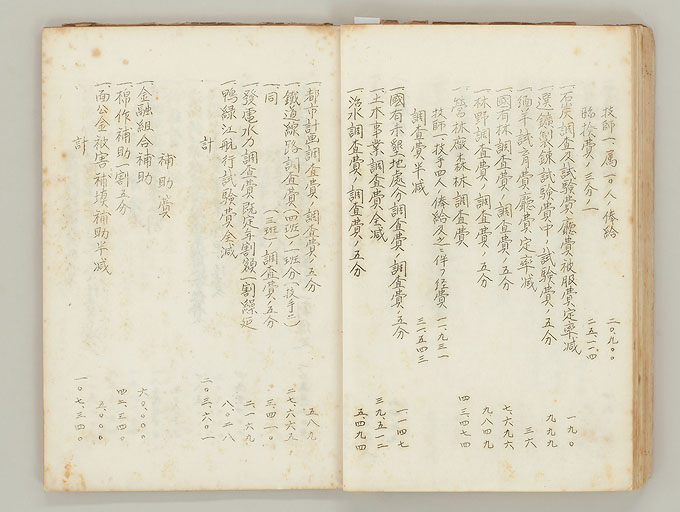 技師一、属一〇人ノ俸給 二〇、九〇〇
臨検費ノ三分ノ一 二五、一一四
一、石炭調査及試験費、廳費被服費定率減 一九〇
一、選鑛製錬試験費中ノ試験費ノ五分 九九九
一、緬羊試育費、廳費定率減 三六
一、國有林調査費、調査費ノ五分 七、六九六
一、林野調査費、調査費ノ五分 九、八四九
一、營林廠森林調査費 四三、四七四
技師一技手四人ノ俸給及之ニ伴フ経費 一一、九三一
調査費半減 三一、五四三
一、國有未墾地處分調査費ノ調査費ノ五分 一、一四七
一、土木事業調査費、調査費全減 三九、五一二
一、治水調査費、調査費ノ五分 五、四九四
一、都市計画調査費、調査費ノ五分 五八九
一、鐵道線路調査費(四班)ノ班分(技手二) 二七、六六三
一、同 (三班)調査費五分 三、四一〇
一、發電水力調査費既定年割額一割繰延 二、一六九
一、鴨緑江航行試験費全減 八、〇二八
計 二〇三、六〇一
補助費
一、金融組合補助 六〇、〇〇〇
一、棉作補助一割五分 四二、三四〇
一、面公金被害補填補助半減 五、〇〇〇
計 一〇七、三四〇